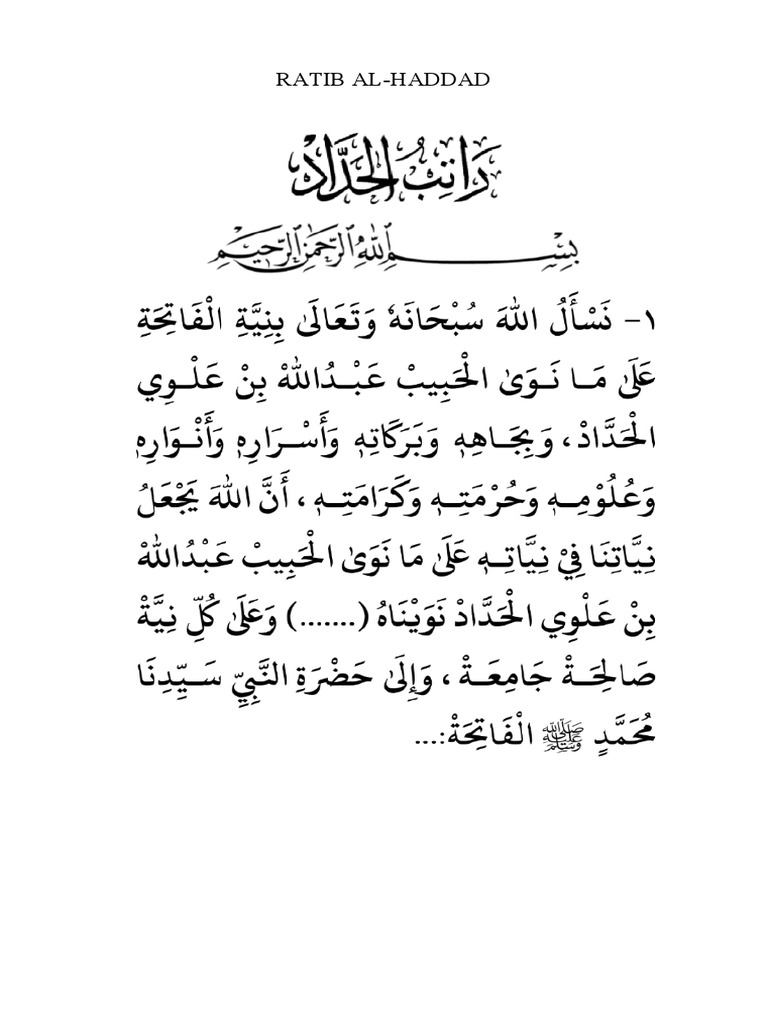 RATIB AL-HADDAD
رَاتِبُ الْحَدَّادْ
بِسْمِ ٱللّٰهِ ٱلرَّحْمٰنِ ٱلرَّحِيْمِ
١- نَسْأَلُ اللهَ سُبْحَانَهٗ وَتَعَالَىٰ بِنِيَّةِ الْفَاتِحَةِ
عَلَىٰ مَا نَوَىٰ الْحَبِيبْ عَبْدُاللهْ بِنْ عَلْوِي
الْحَدَّادْ، وَبِجَاهِهٖ وَبَرَكَاتِهٖ وَأَسْرَارِهٖ وَأَنْوَارِهٖ
وَعُلُوْمِهٖ وَحُرْمَتِهٖ وَكَرَامَتِهٖ، أَنَّ اللهَ يَجْعَلُ
نِيَّاتِنَا فِيْ نِيَّاتِهٖ عَلَىٰ مَا نَوَىٰ الْحَبِيبْ عَبْدُاللهْ
بِنْ عَلْوِي الْحَدَّادْ نَوَيْنَاهُ (.......) وَعَلَىٰ كُلِّ نِيَّةْ
صَالِحَةْ جَامِعَةْ، وَإِلَىٰ حَضْرَةِ النَّبِيِّ سَيِّدِنَا
مُحَمَّدٍ ﷺ الْفَاتِحَةْ:...